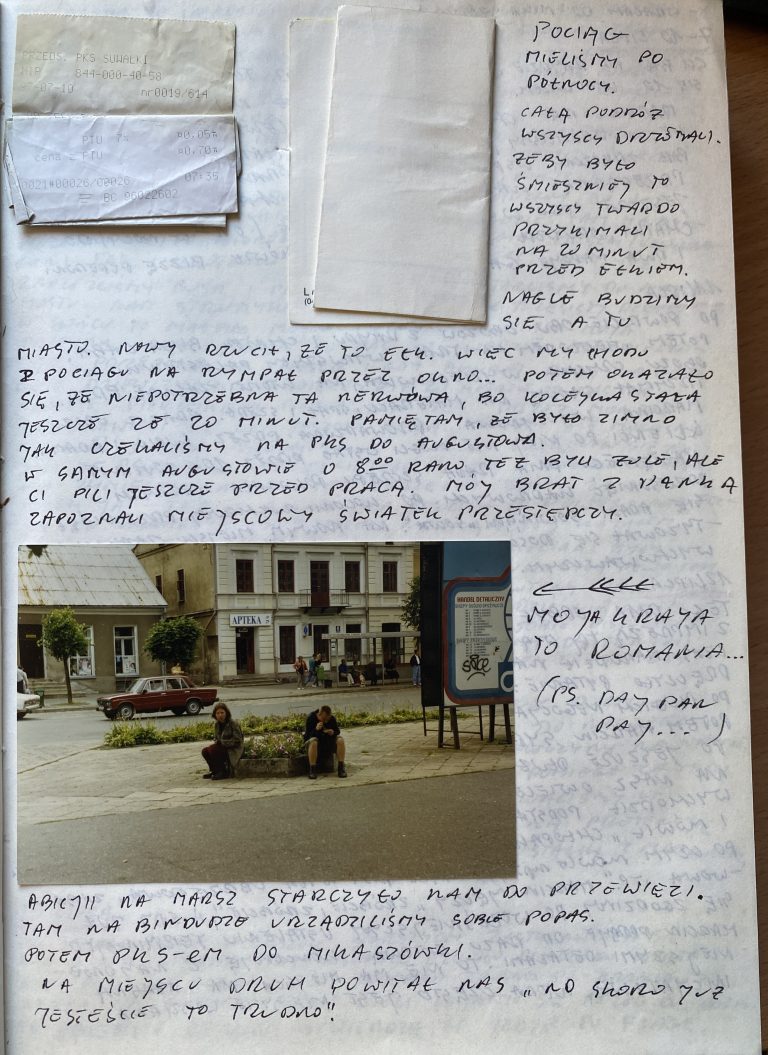 PRZEDS. PKS SUWAŁKI
NIP 844-000-40-58
97-07-10 nr0019/614
PTU 7% ¤0,05
cena z PTU ¤0,70
#00026/0026 07:35
BC 96022602
POCIĄG
MIELIŚMY PO
PÓŁNOCY.
CAŁĄ PODRÓŻ
WSZYSCY DRZEMALI.
ŻEBY BYŁO
ŚMIESZNIEJ TO
WSZYSCY TWARDO
PRZYKIMALI
NA 20 MINUT
PRZED EŁKIEM.
NAGLE BUDZIMY
SIĘ A TU
MIASTO. NOWY RZUCIŁ, ŻE TO EŁK. WIĘC MY CHODU
Z POCIĄGU NA RYMPAŁ PRZEZ OKNO... POTEM OKAZAŁO
SIĘ, ŻE NIEPOTRZEBNA TA NERWÓWA, BO KOLEJKA STAŁA
JESZCZE ZE 20 MINUT. PAMIĘTAM, ŻE BYŁO ZIMNO
JAK CZEKALIŚMY NA PKS DO AUGUSTOWA.
W SAMYM AUGUSTOWIE O 8⁰⁰ RANO TEŻ BYLI ŻULE, ALE
CI PILI JESZCZE PRZED PRACĄ. MÓJ BRAT Z
ZAPOZNALI MIEJSCOWY ŚWIATEK PRZESTĘPCZY.
HANDEL DETALICZNY
APTEKA
MOJA KRAJA
TO ROMANIA...
(PS. DAJ PAN
DAJ...)
ABICJII NA MARSZ STARCZYŁO NAM DO PRZEWIĘZI.
TAM NA BINDUDZE URZĄDZILIŚMY SOBIE POPAS.
POTEM PKS-EM DO MIKASZÓWKI.
NA MIEJSCU DRUH POWITAŁ NAS „NO SKORO JUŻ
JESTEŚCIE TO TRUDNO".